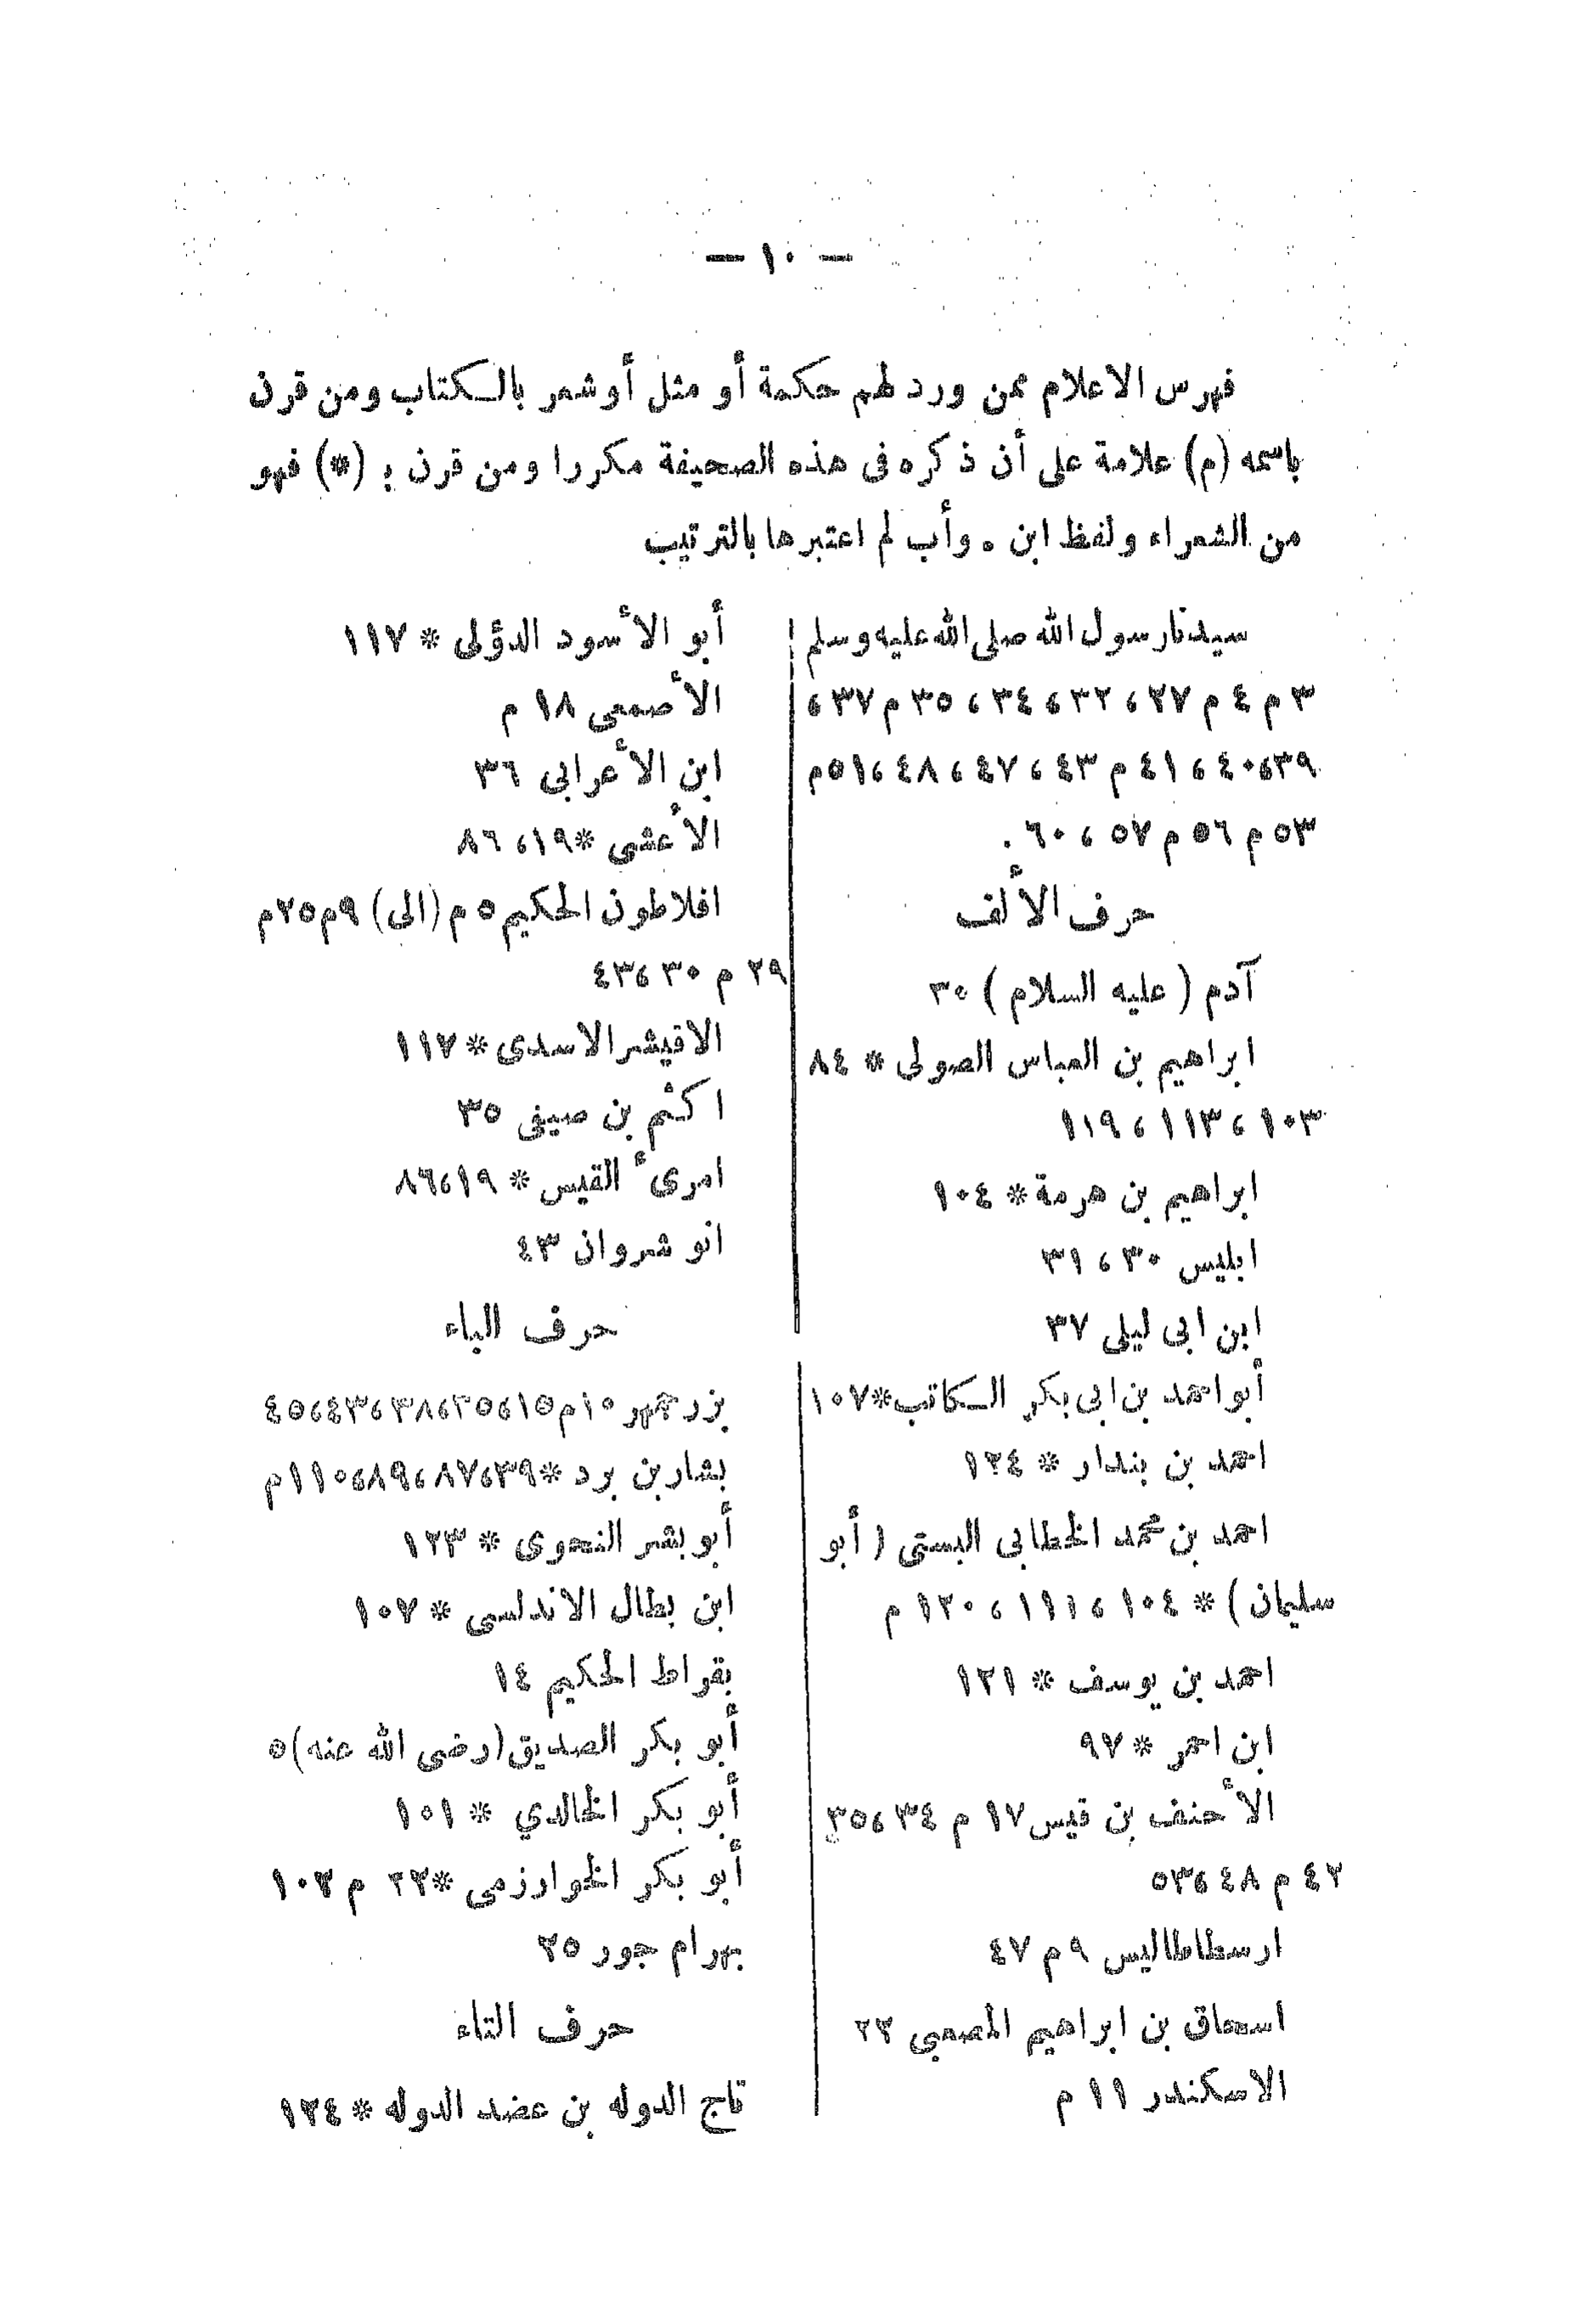 — ١٠ —
فهرس الاعلام ممن ورد لهم حكمة أو مثل أو شعر بالكتاب ومن قرن
باسمه (م) علامة على أن ذكره فى هذه الصحيفة مكررا ومن قرن بـ (*) فهو
من الشعراء ولفظ ابن . وأب لم اعتبرها بالترتيب
سيدنا رسول الله صلى الله عليه وسلم
٣ م ٤ م ٢٧، ٣٢، ٣٤، ٣٥ م ٣٧،
٣٩،٤٠، ٤١ م ٤٣، ٤٧، ٤٨، ٥١م
٥٣ م ٥٦ م ٥٧، ٦٠ .
حرف الألف
آدم ( عليه السلام ) ٣٥
ابراهيم بن العباس الصولى * ٨٤
١٠٣، ١١٣، ١١٩
ابراهيم بن هرمة * ١٠٤
ابليس ٣٠، ٣١
ابن ابى ليلى ٣٧
أبو احمد بن ابى بكر الكاتب*١٠٧
احمد بن بندار * ١٢٤
احمد بن محمد الخطابى البستى ( أبو
سليمان ) * ١٠٤، ١١١، ١٢٠ م
احمد بن يوسف * ١٢١
ابن احمر * ٩٧
الأحنف بن قيس ١٧ م ٣٤، ٣٥
٤٢ م ٤٨، ٥٣
ارسطاطاليس ٩ م ٤٧
اسحاق بن ابراهيم المصعبى ٢٣
الاسكندر ١١ م
أبو الأسود الدؤلى * ١١٧
الأصمعى ١٨ م
ابن الأعرابى ٣٦
الأعشى *١٩، ٨٦
افلاطون الحكيم ٥ م (الى) ٩م٢٥م
٢٩ م ٣٠، ٤٣
الاقيشر الاسدى * ١١٧
اكثم بن صيفى ٣٥
امرىء القيس * ١٩، ٨٦
انو شروان ٤٣
حرف الباء
بزرجمهر ١٠م١٥،٣٥،٣٨،٤٣،٤٥
بشار بن برد *٣٩، ٨٧، ٨٩، ١١٠م
أبو بشر النحوى * ١٢٣
ابن بطال الاندلسى * ١٠٧
بقراط الحكيم ١٤
أبو بكر الصديق (رضى الله عنه) ٥
أبو بكر الخالدي * ١٠١
أبو بكر الخوارزمى *٢٣ م ١٠٣
بهرام جور ٢٥
حرف التاء
تاج الدوله بن عضد الدوله * ١٢٤